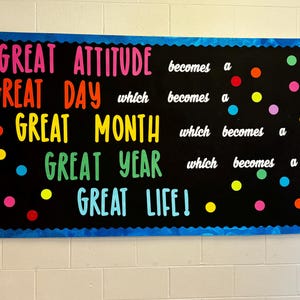 GREAT ATTITUDE becomes a
GREAT DAY which becomes a
GREAT MONTH which becomes a
GREAT YEAR which becomes a
GREAT LIFE!